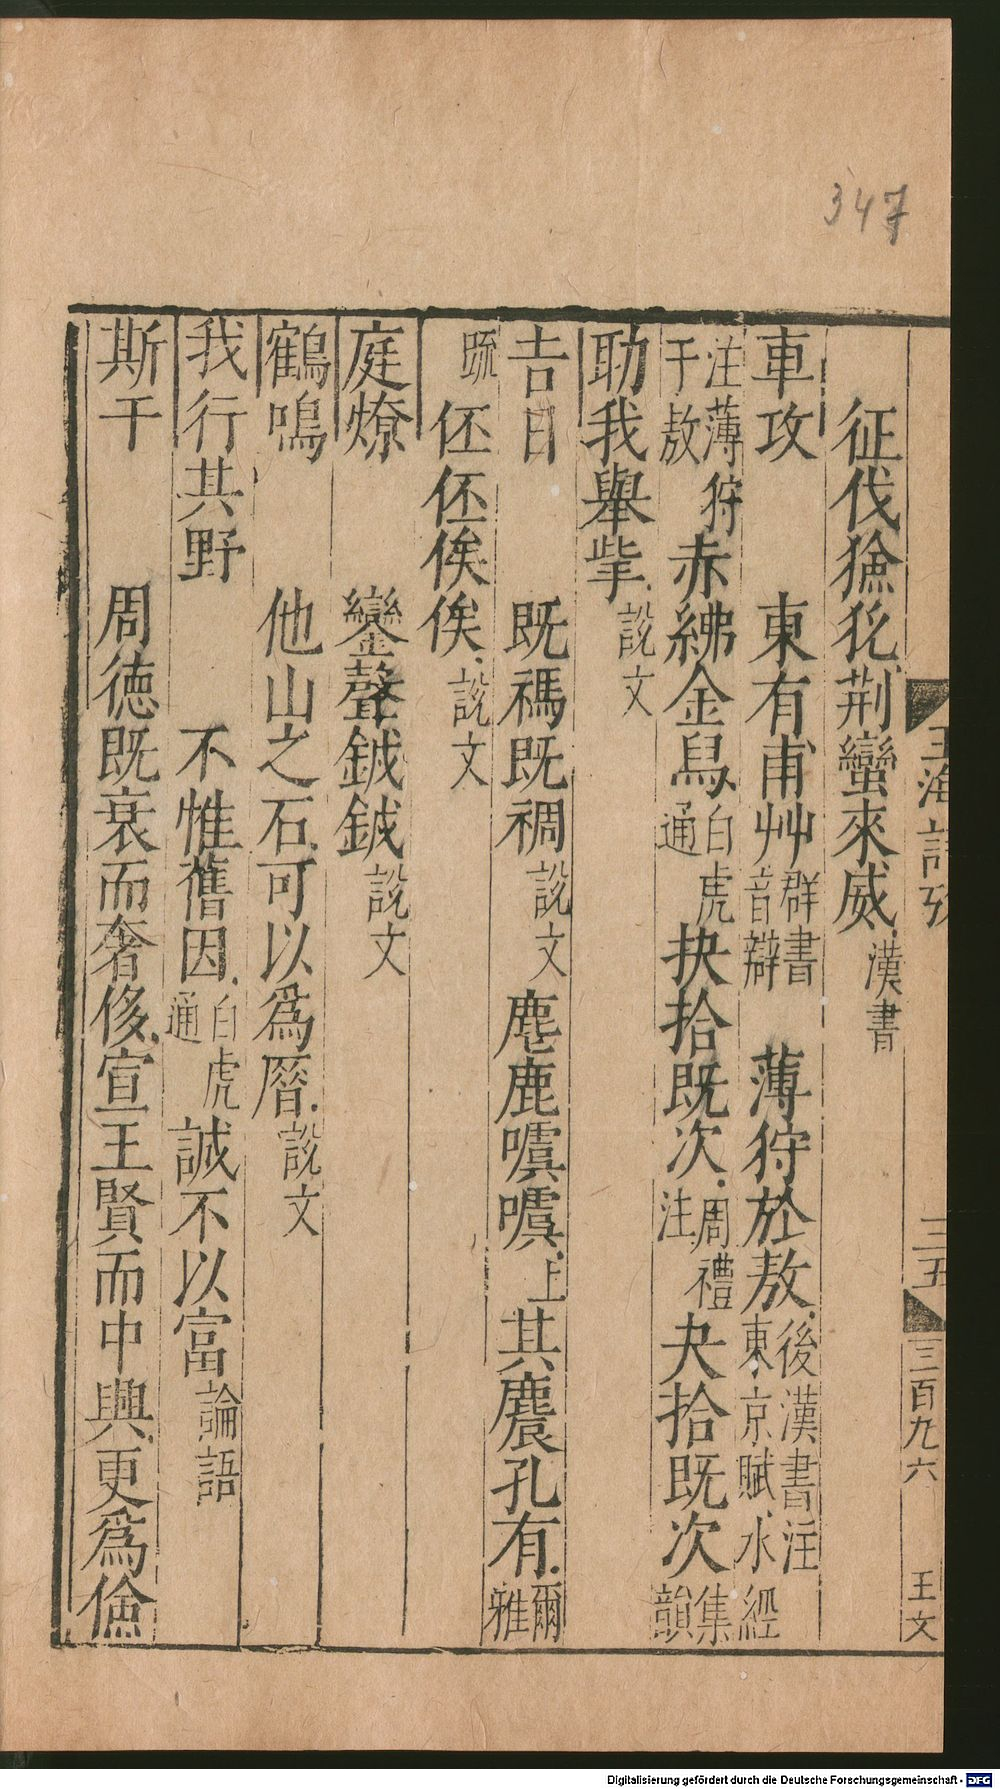 347
玉海詩攷
三五
三百九六
王文
征伐獫狁荆蠻來威漢書
車攻 東有甫艸群書音辯 薄狩於敖後漢書注東京賦水經
注薄狩于敖 赤紼金舄白虎通 抉拾既次周禮注 夬拾既次集韻
助我舉㧘說文
吉日 既禡既禂說文 麀鹿噳噳上 其麎孔有爾雅
疏 伾伾俟俟說文
庭燎 鑾聲鉞鉞說文
鶴鳴 他山之石可以爲厝說文
我行其野 不惟舊因白虎通 誠不以富論語
斯干 周德既衰而奢侈宣王賢而中興更爲儉
Digitalisierung gefördert durch die Deutsche Forschungsgemeinschaft - DFG